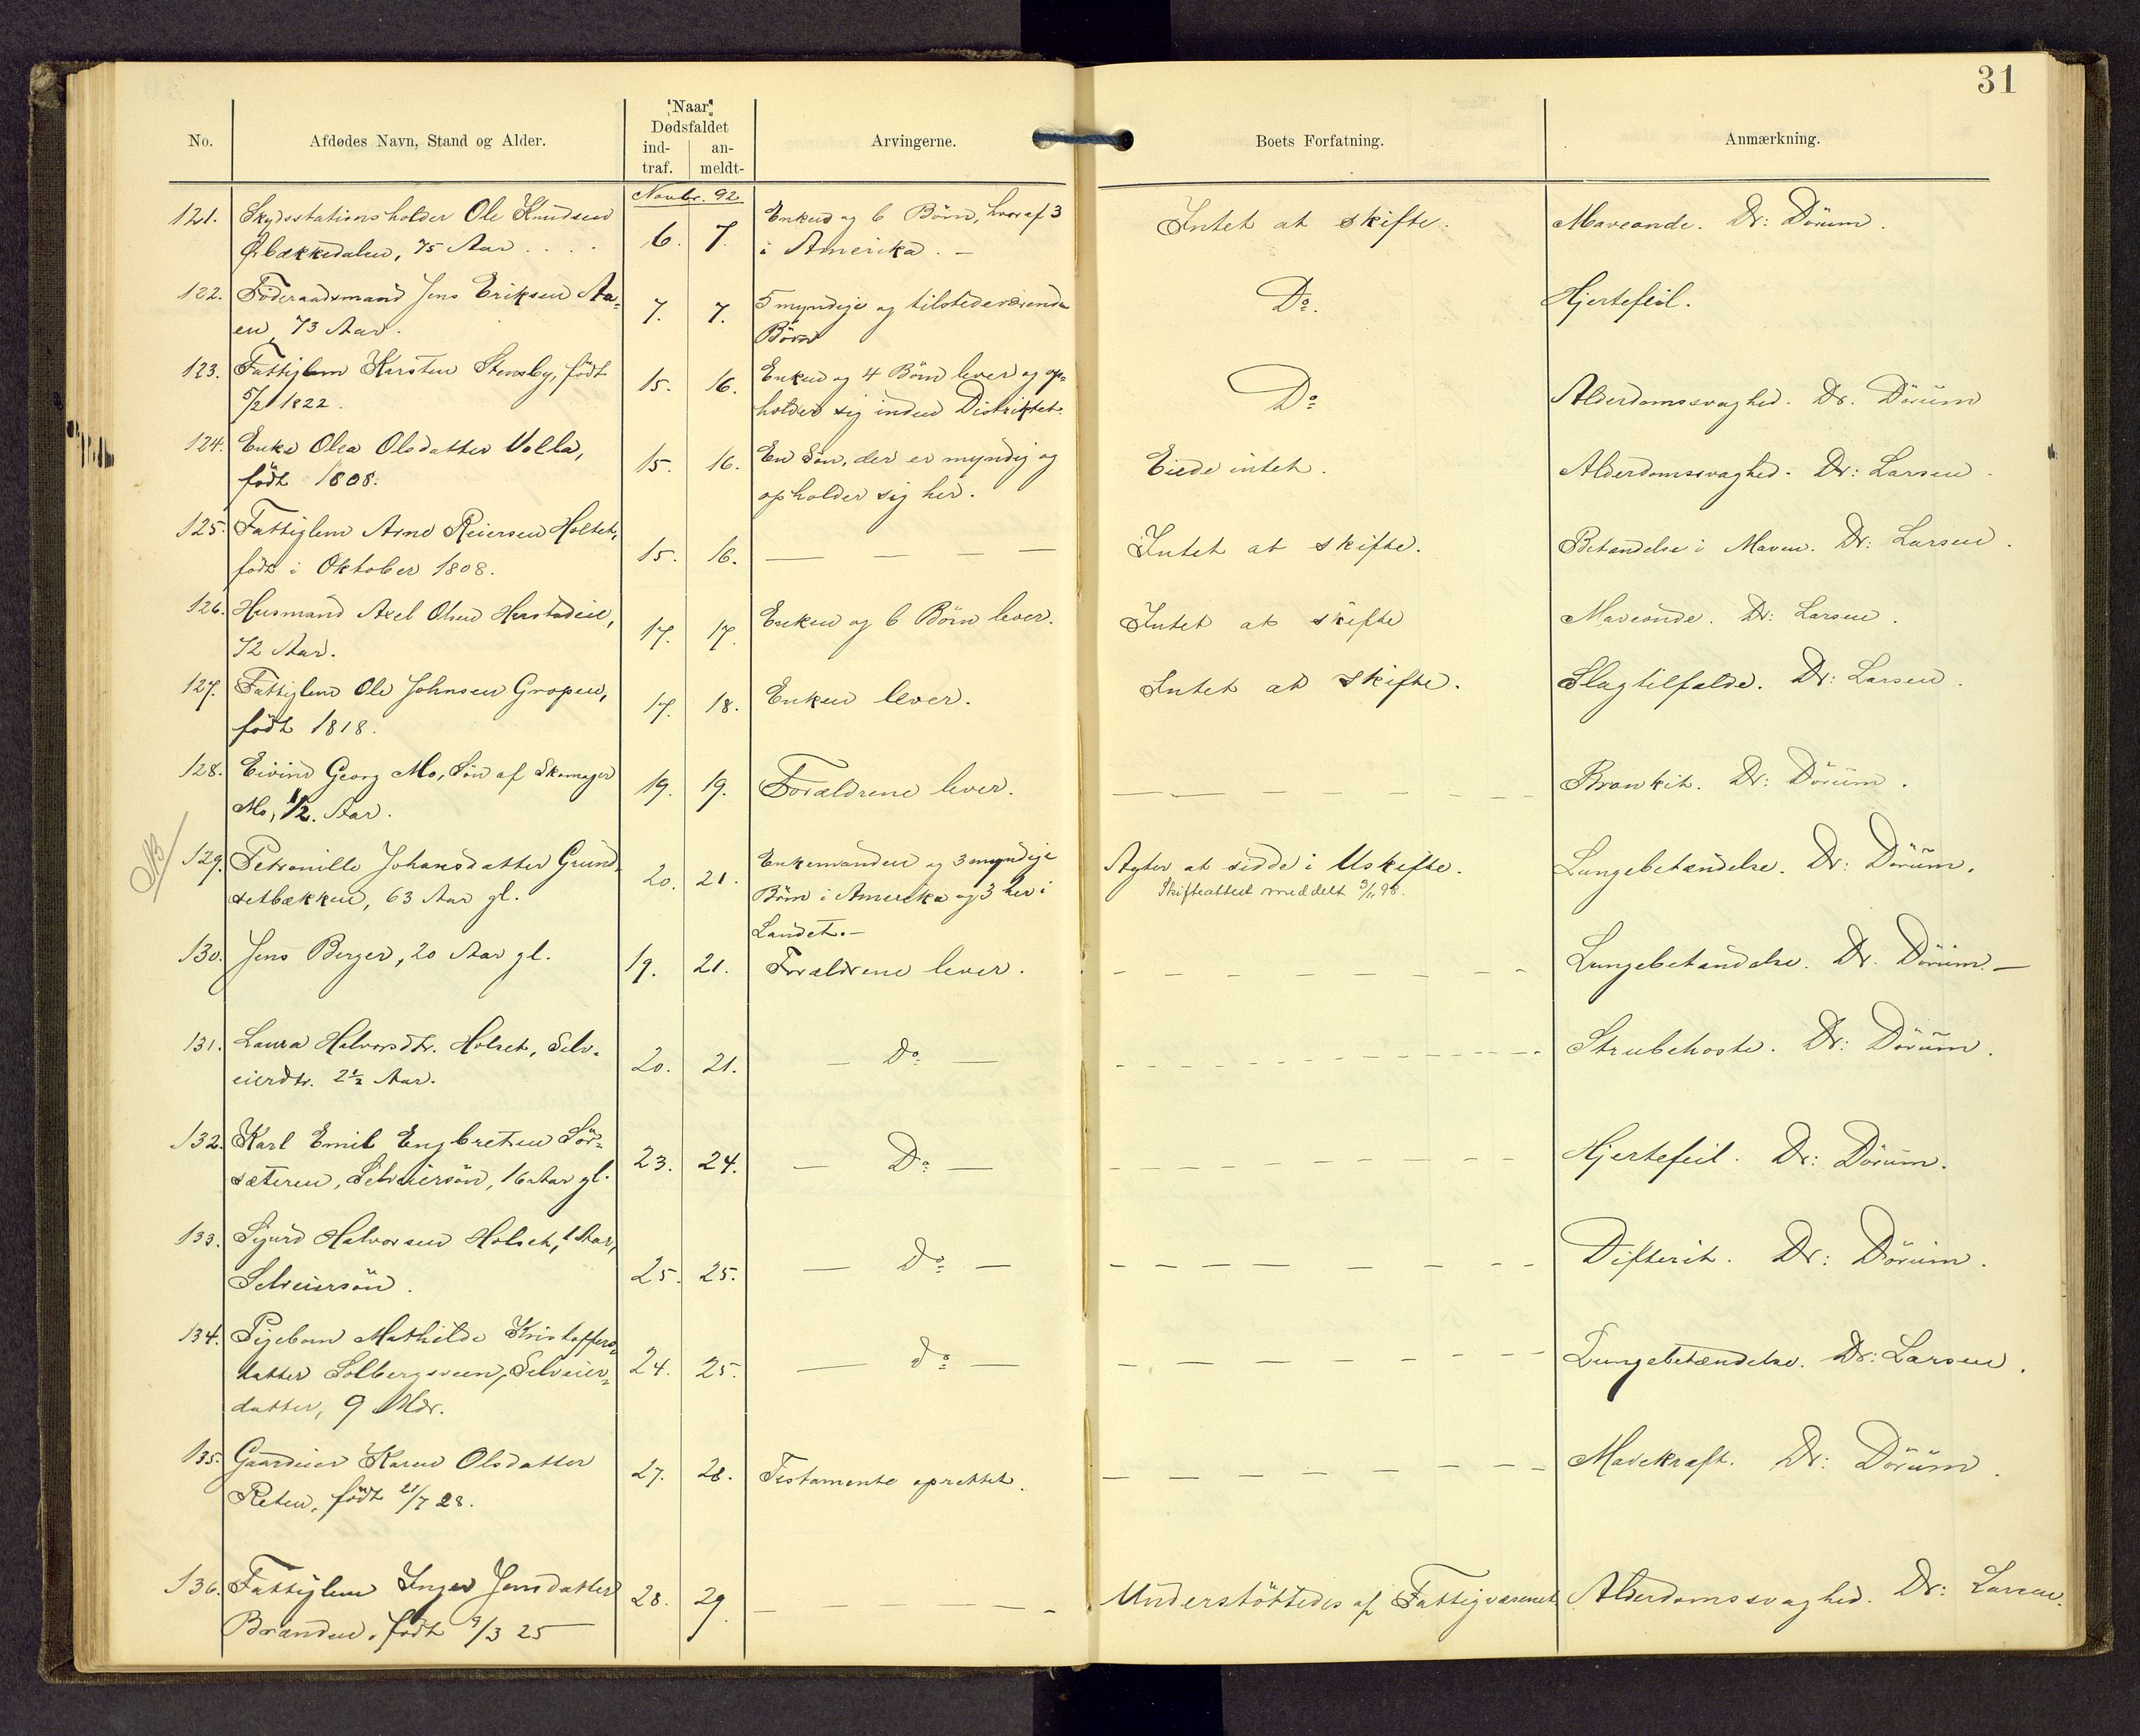 31
No.
Afdødes Navn, Stand og Alder.
"Naar"
Dødsfaldet
ind-
traf.
an-
meldt-
Arvingerne.
Boets Forfatning.
Anmærkning.
Novbr. 92
121. Skydsstationsholder Ole Knudsen 6. 7. Enken og 6 Børn, hvoraf 3 Intet at skifte. Maveonde. Dr: Dörum.
Ørbækkedalen, 75 Aar . . . . i Amerika. —
122. Föderaadsmand Jens Eriksen Aa= 7. 7. 5 myndige og tilstedeværende Do. Hjertefeil.
en, 73 Aar. Börn
123. Fattiglem Karsten Stensby, födt 15. 16. Enken og 4 Börn lever og op= Do Alderdomssvaghed. Dr. Dörum
5/2 1822. holder sig inden Distriktet.
124. Enke Olea Olsdatter Volla, 15. 16. En Sön, der er myndig og Eiede intet. Alderdomssvaghed. Dr: Larsen
födt 1808. opholder sig her.
125. Fattiglem Arne Reiersen Holtet, 15. 16. — — — — Intet at skifte. Betændelse i Maven. Dr: Larsen.
födt i Oktober 1808.
126. Husmand Axel Olsen Herstadeie, 17. 17. Enken og 6 Börn lever. Intet at skifte Maveonde. Dr: Larsen.
72 Aar.
127. Fattiglem Ole Johnsen Gropen, 17. 18. Enken lever. Intet at skifte. Slagtilfælde. Dr: Larsen.
födt 1818.
128. Eivind Georg Mo, Sön af Skomager 19. 19. Forældrene lever. — — — — — Bronkit. Dr: Dörum.
Mo, 1/2 Aar.
NB
129. Petronille Johansdatter Grund= 20. 21. Enkemanden og 3 myndige Agter at sidde i Uskifte. Lungebetændelse. Dr: Dörum.
setbækken, 63 Aar gl. Börn i Amerika og 3 her i Skifteattest meddelt 3/11 98.
Landet. —
130. Jens Berger, 20 Aar gl. 19. 21. Forældrene lever. — — — — — Lungebetændelse. Dr. Dörum. —
131. Laura Halvorsdtr. Holset, Selv= 20. 21. — Do — — — — — — Strubehoste. Dr: Dörum.
eierdtr. 2½ Aar.
132. Karl Emil Engbretsen Sör= 23. 24. — Do — — — — — — Hjertefeil. Dr: Dörum.
sæteren, Selveiersön, 16 Aar gl.
133. Sigurd Halvorsen Holset, 1 Aar, 25. 25. — Do — — — — — — Difterit. Dr: Dörum.
Selveiersön.
134. Pigebarn Mathilde Kristoffers= 24. 25. — do — — — — — — Lungebetændelse. Dr: Larsen.
datter Solbergsveen, Selveier=
datter, 9 Mdr.
135. Gaardeier Karen Olsdatter 27. 28. Testamente oprettet. — — — — — Mavekræft. Dr: Dörum.
Reten, födt 21/7 28.
136. Fattiglem Inger Jensdatter 28. 29. — — — — — Understöttedes af Fattigvæsenet Alderdomssvaghed. Dr: Larsen.
Brænden, födt 9/3 25 —